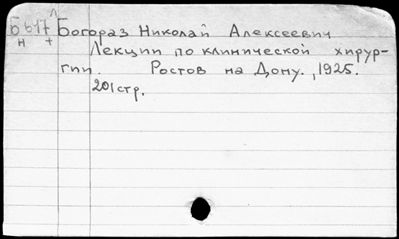 Богораз Николай Алексеевич
Лекции по клинической хирур-
гии. Ростов на Дону., 1925.
201стр.